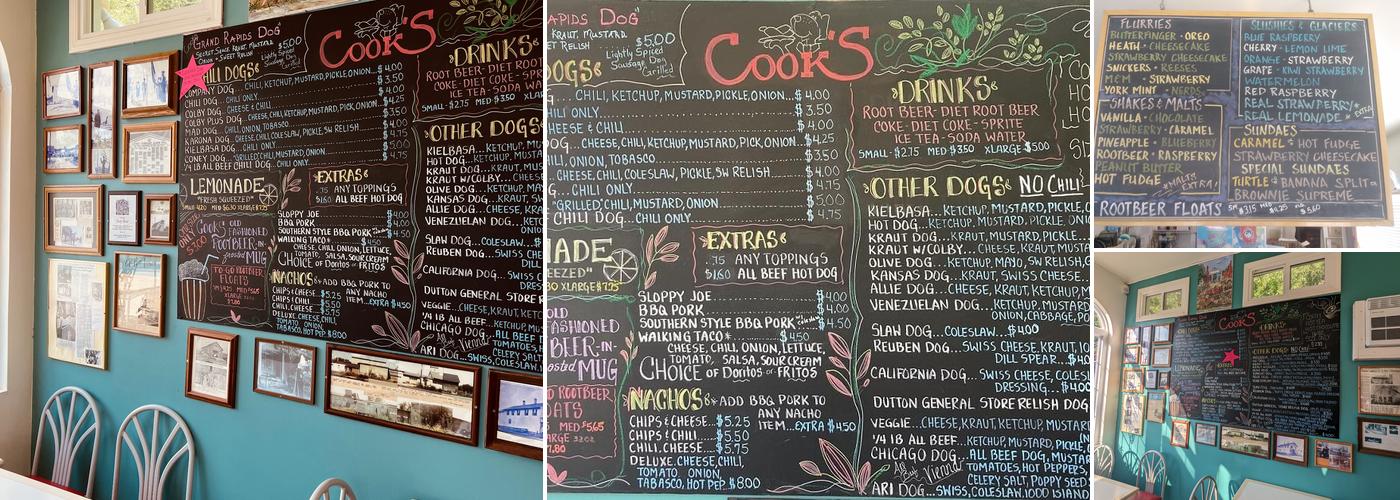 "GRAND RAPIDS DOG"
SECRET SAUCE, KRAUT, MUSTARD,
ONION + SWEET RELISH
$5.00
Lightly Spiced
Sausage Dog
Grilled
COOK'S
CHILI DOGS
COMPANY DOG... CHILI, KETCHUP, MUSTARD, PICKLE, ONION...$4.00
CHILI DOG... CHILI ONLY...$3.50
COLBY DOG... CHEESE & CHILI...$4.00
COLBY PLUS DOG... CHEESE, CHILI, KETCHUP, MUSTARD, PICK, ONION...$4.25
MAD DOG... CHILI, ONION, TOBASCO...$3.50
KARONA DOG... CHEESE, CHILI, COLESLAW, PICKLE, SW RELISH...$4.00
KIELBASA DOG... CHILI ONLY...$4.75
CONEY DOG... "GRILLED" CHILI, MUSTARD, ONION...$5.00
1/4 LB BEEF CHILI DOG... CHILI ONLY...$4.75
LEMONADE
"FRESH SQUEEZED"
XLARGE $7.25
OLD
FASHIONED
ROOTBEER-IN-
Frosted MUG
TO GO ROOTBEER
FLOATS
MED $5.65
XLARGE 32OZ
$7.80
EXTRAS
.75 ANY TOPPINGS
$1.60 ALL BEEF HOT DOG
SLOPPY JOE...$4.00
BBQ PORK...$4.00
SOUTHERN STYLE BBQ PORK...$4.50
WALKING TACO...$4.50
CHEESE, CHILI, ONION, LETTUCE,
TOMATO, SALSA, SOUR CREAM
CHOICE of Doritos or FRITOS
NACHOS
ADD BBQ PORK TO
ANY NACHO
ITEM...EXTRA $4.50
CHIPS & CHEESE...$5.25
CHIPS & CHILI...$5.50
CHIPS, CHILI, CHEESE...$5.75
DELUXE..CHEESE, CHILI,
TOMATO, ONION,
TABASCO, HOT PEP. $8.00
DRINKS
ROOT BEER - DIET ROOT BEER
COKE - DIET COKE - SPRITE
ICE TEA - SODA WATER
SMALL - $2.75 MED $3.50 XLARGE $5.00
OTHER DOGS NO CHILI
KIELBASA...KETCHUP, MUSTARD, PICKLE,
HOT DOG...KETCHUP, MUSTARD, PICKLE, ONION
KRAUT DOG...KRAUT, MUSTARD, PICKLE
KRAUT W/COLBY...CHEESE, KRAUT,
OLIVE DOG...KETCHUP, MAYO, SW RELISH,
KANSAS DOG...KRAUT, SWISS CHEESE,
ALLIE DOG...CHEESE, KRAUT, MUSTARD,
VENEZUELAN DOG...KETCHUP, MUSTARD,
ONION, CABBAGE,
SLAW DOG...COLESLAW...$4.00
REUBEN DOG...SWISS CHEESE, KRAUT
DILL SPEAR...
CALIFORNIA DOG...SWISS CHEESE, COLESLAW
DRESSING...$4.00
DUTTON GENERAL STORE RELISH DOG
VEGGIE...CHEESE, KRAUT, KETCHUP, MUSTARD,
1/4 LB ALL BEEF...KETCHUP, MUSTARD, PICKLE,
CHICAGO DOG...ALL BEEF DOG, MUSTARD, ONION,
All Beef Vienna
TOMATOES, HOT PEPPERS,
CELERY SALT, POPPY SEED
ARI DOG...SWISS, COLESLAW, 1000 ISLAND
FLURRIES
BUTTERFINGER · OREO
HEATH · CHEESECAKE
STRAWBERRY CHEESECAKE
SNICKERS · REESES
M&M · STRAWBERRY
YORK MINT · NERDS
SHAKES & MALTS
VANILLA · CHOCOLATE
STRAWBERRY · CARAMEL
PINEAPPLE · BLUEBERRY
ROOTBEER · RASPBERRY
PEANUT BUTTER
HOT FUDGE
MALTS EXTRA!
ROOTBEER FLOATS
SLUSHIES & GLACIERS
BLUE RASPBERRY
CHERRY · LEMON LIME
ORANGE · STRAWBERRY
GRAPE · KIWI STRAWBERRY
WATERMELON
RED RASPBERRY
REAL STRAWBERRY
REAL LEMONADE
SUNDAES
CARAMEL HOT FUDGE
STRAWBERRY CHEESECAKE
SPECIAL SUNDAES
TURTLE BANANA SPLIT
BROWNIE SUPREME